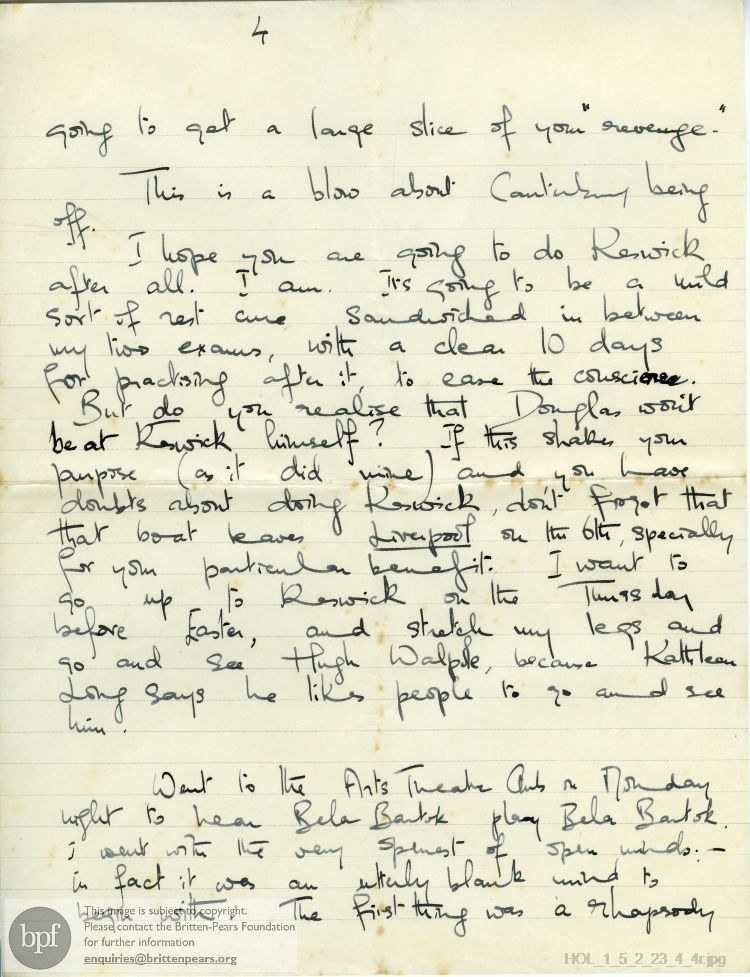 4
going to get a large slice of your "revenge."
This is a blow about Canterbury being
off.
I hope you are going to do Keswick
after all. I am. It's going to be a mild
sort of rest cure sandwiched in between
my two exams, with a clear 10 days
for practising after it, to ease the conscience.
But do you realise that Douglas won't
be at Keswick himself? If this shakes your
purpose (as it did mine) and you have
doubts about doing Keswick, don't forget that
that boat leaves Liverpool on the 6th, specially
for your particular benefit. I want to
go up to Keswick on the Thursday
before Easter, and stretch my legs and
go and see Hugh Walpole, because Kathleen
Long says he likes people to go and see
him.
Went to the Arts Theatre Club on Monday
night to hear Bela Bartok play Bela Bartok.
I went with the very openest of open minds: –
in fact it was an utterly blank mind to
begin with. The first thing was a Rhapsody
bpf
This image is subject to copyright.
Please contact the Britten-Pears Foundation
for further information
enquiries@brittenpears.org
HOL_1_5_2_23_4_4r.jpg